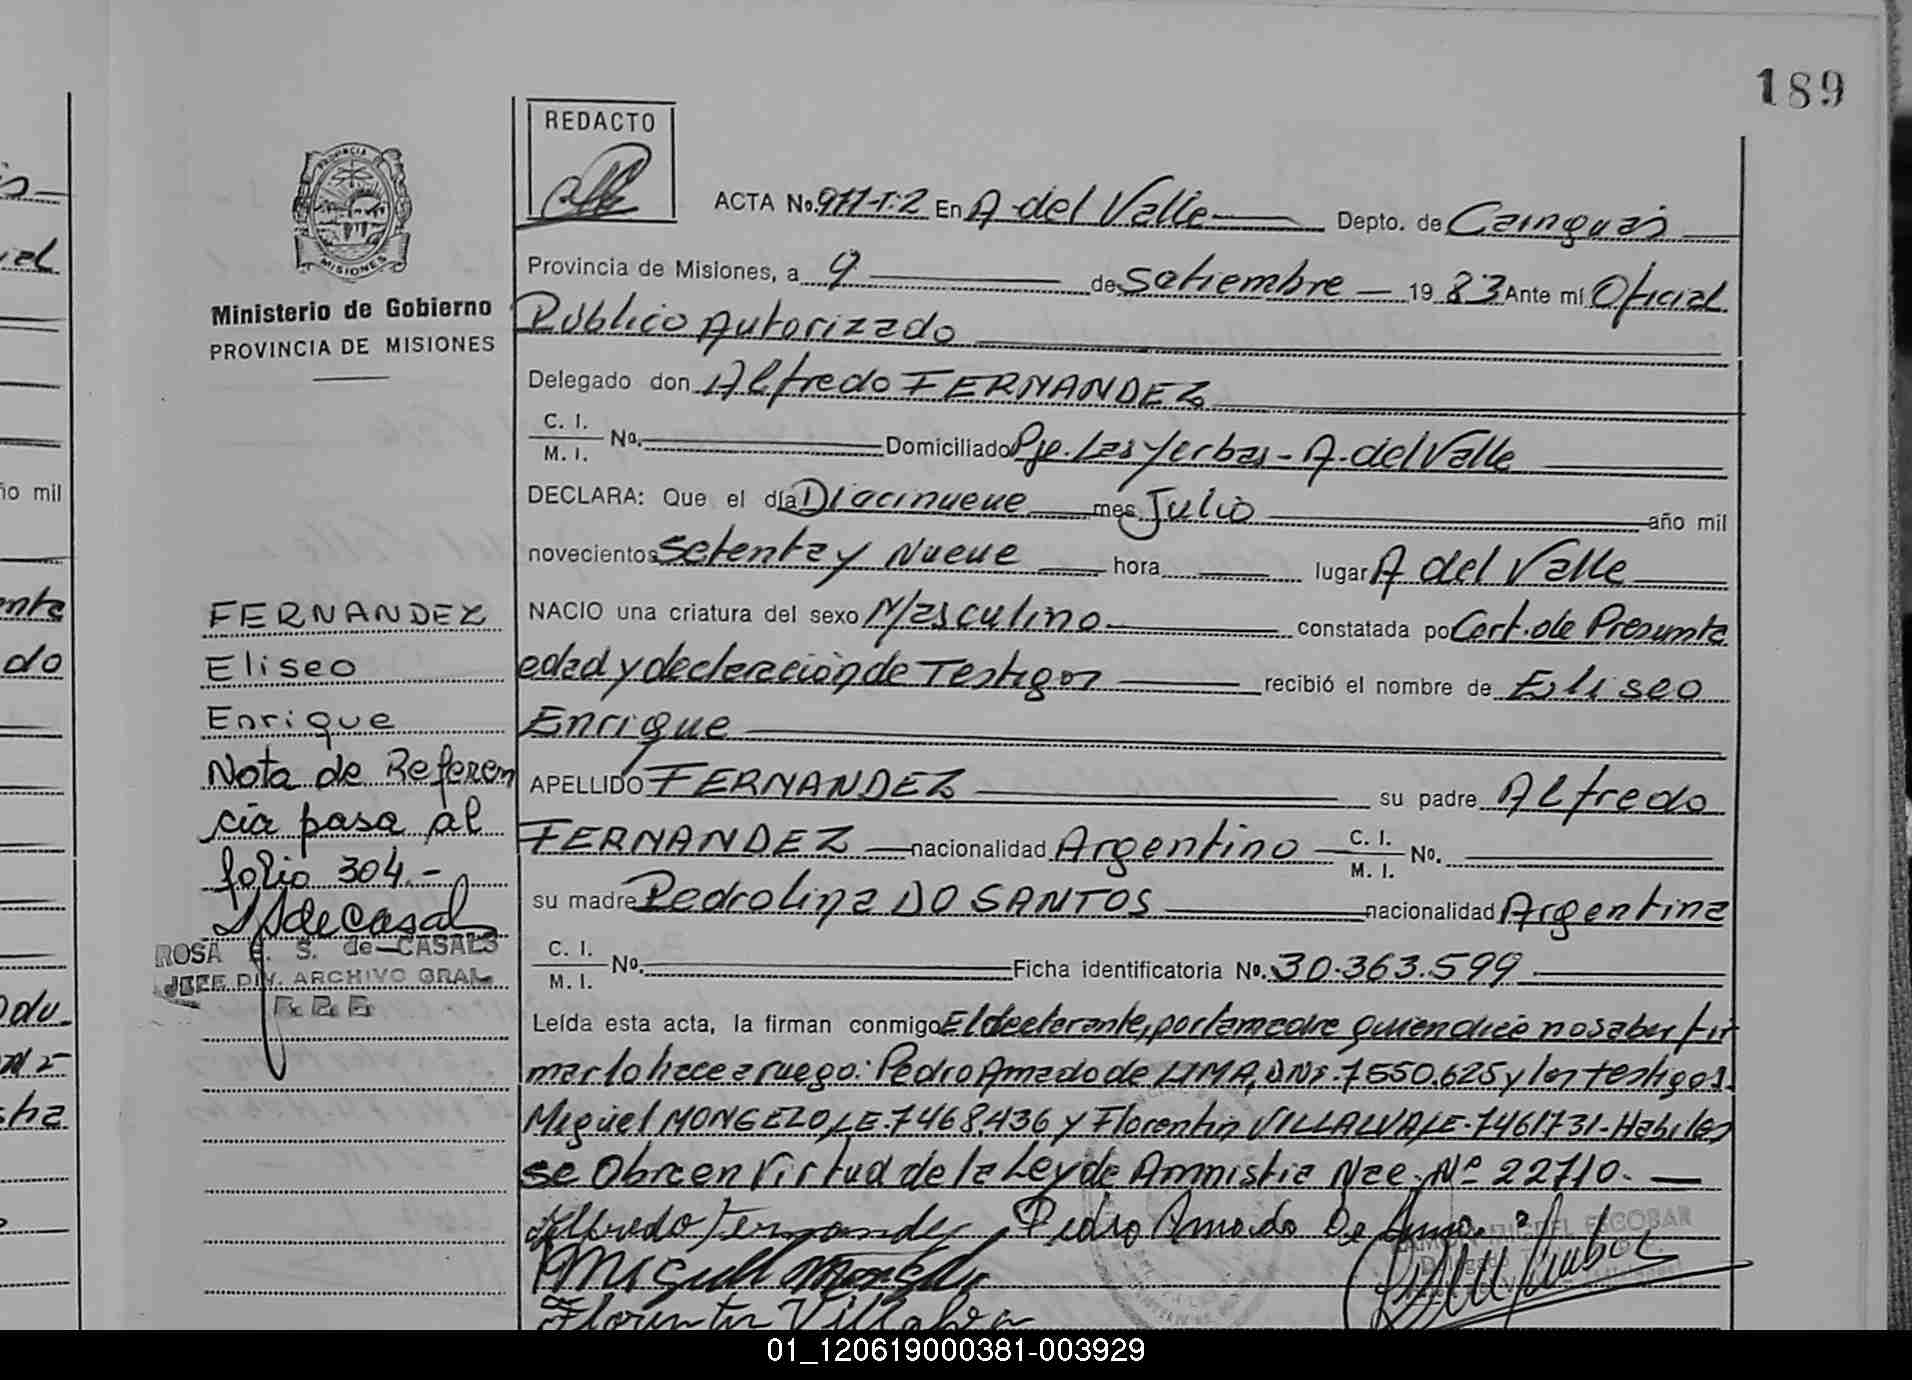 189
REDACTO
ACTA No. 977-T:2 En A. del Valle Depto. de Cainguás
Provincia de Misiones, a 9 de Setiembre 1983 Ante mí Oficial
Público Autorizado
Delegado don Alfredo FERNANDEZ
C. I.
M. I. No. Domiciliado Pje. Las Yerbas - A. del Valle
DECLARA: Que el día Diecinueve mes Julio año mil
novecientos Setenta y Nueve hora lugar A del Valle
NACIO una criatura del sexo Masculino constatada po Cert. de Presunta
edad y declaración de Testigos recibió el nombre de Eliseo
Enrique
APELLIDO FERNANDEZ su padre Alfredo
FERNANDEZ nacionalidad Argentino C. I.
M. I. No.
su madre Pedrolina DO SANTOS nacionalidad Argentina
C. I.
M. I. No. Ficha identificatoria No. 30.363.599
Leída esta acta, la firman conmigo El declarante, por la madre quien dice no saber fir
mar lo hace a ruego: Pedro Amado de LIMA, DNI. 7550.625 y los testigos
Miguel MONGELO, LE. 7468.436 y Florentin VILLALVA LE. 7461731 - Habiles
se Obra en Virtud de la Ley de Amnistia Nac. Nº 22710.
Alfredo Fernandez Pedro Amado De Lima
Miguel Mongelo
Florentin Villalva
MIGUEL ESCOBAR
Ministerio de Gobierno
PROVINCIA DE MISIONES
FERNANDEZ
Eliseo
Enrique
Nota de Referen
cia pasa al
folio 304.-
de Casal
ROSA E. S. de CASALS
JEFE DIV. ARCHIVO GRAL.
PROVINCIA
MISIONES
ño mil
do
01_120619000381-003929